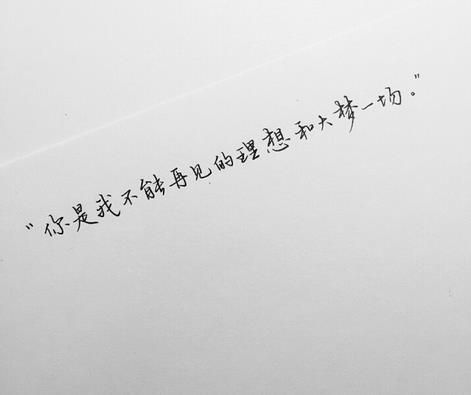 “你是我不能再见的理想和大梦一场。”